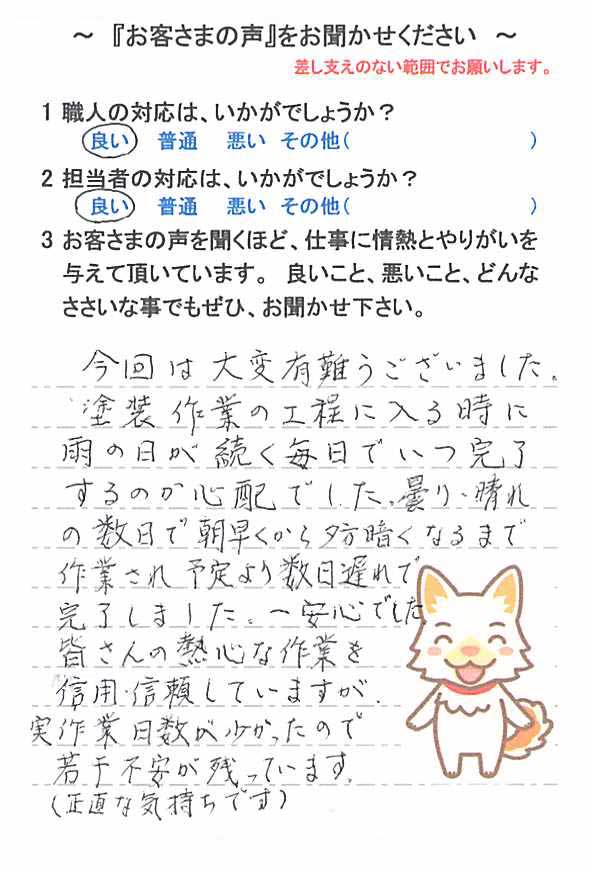 ～ 『お客さまの声』をお聞かせください ～
差し支えのない範囲でお願いします。
1 職人の対応は、いかがでしょうか？
良い 普通 悪い その他( )
2 担当者の対応は、いかがでしょうか？
良い 普通 悪い その他( )
3 お客さまの声を聞くほど、仕事に情熱とやりがいを
与えて頂いています。 良いこと、悪いこと、どんな
ささいな事でもぜひ、お聞かせ下さい。
今回は大変有難うございました。
塗装作業の工程に入る時に
雨の日が続く毎日でいつ完了
するのか心配でした、曇り・晴れ
の数日で朝早くから夕方暗くなるまで
作業され予定より数日遅れで
完了しました。一安心でした
皆さんの熱心な作業を
信用・信頼していますが、
実作業日数が少かったので
若干不安が残っています。
(正直な気持ちです)